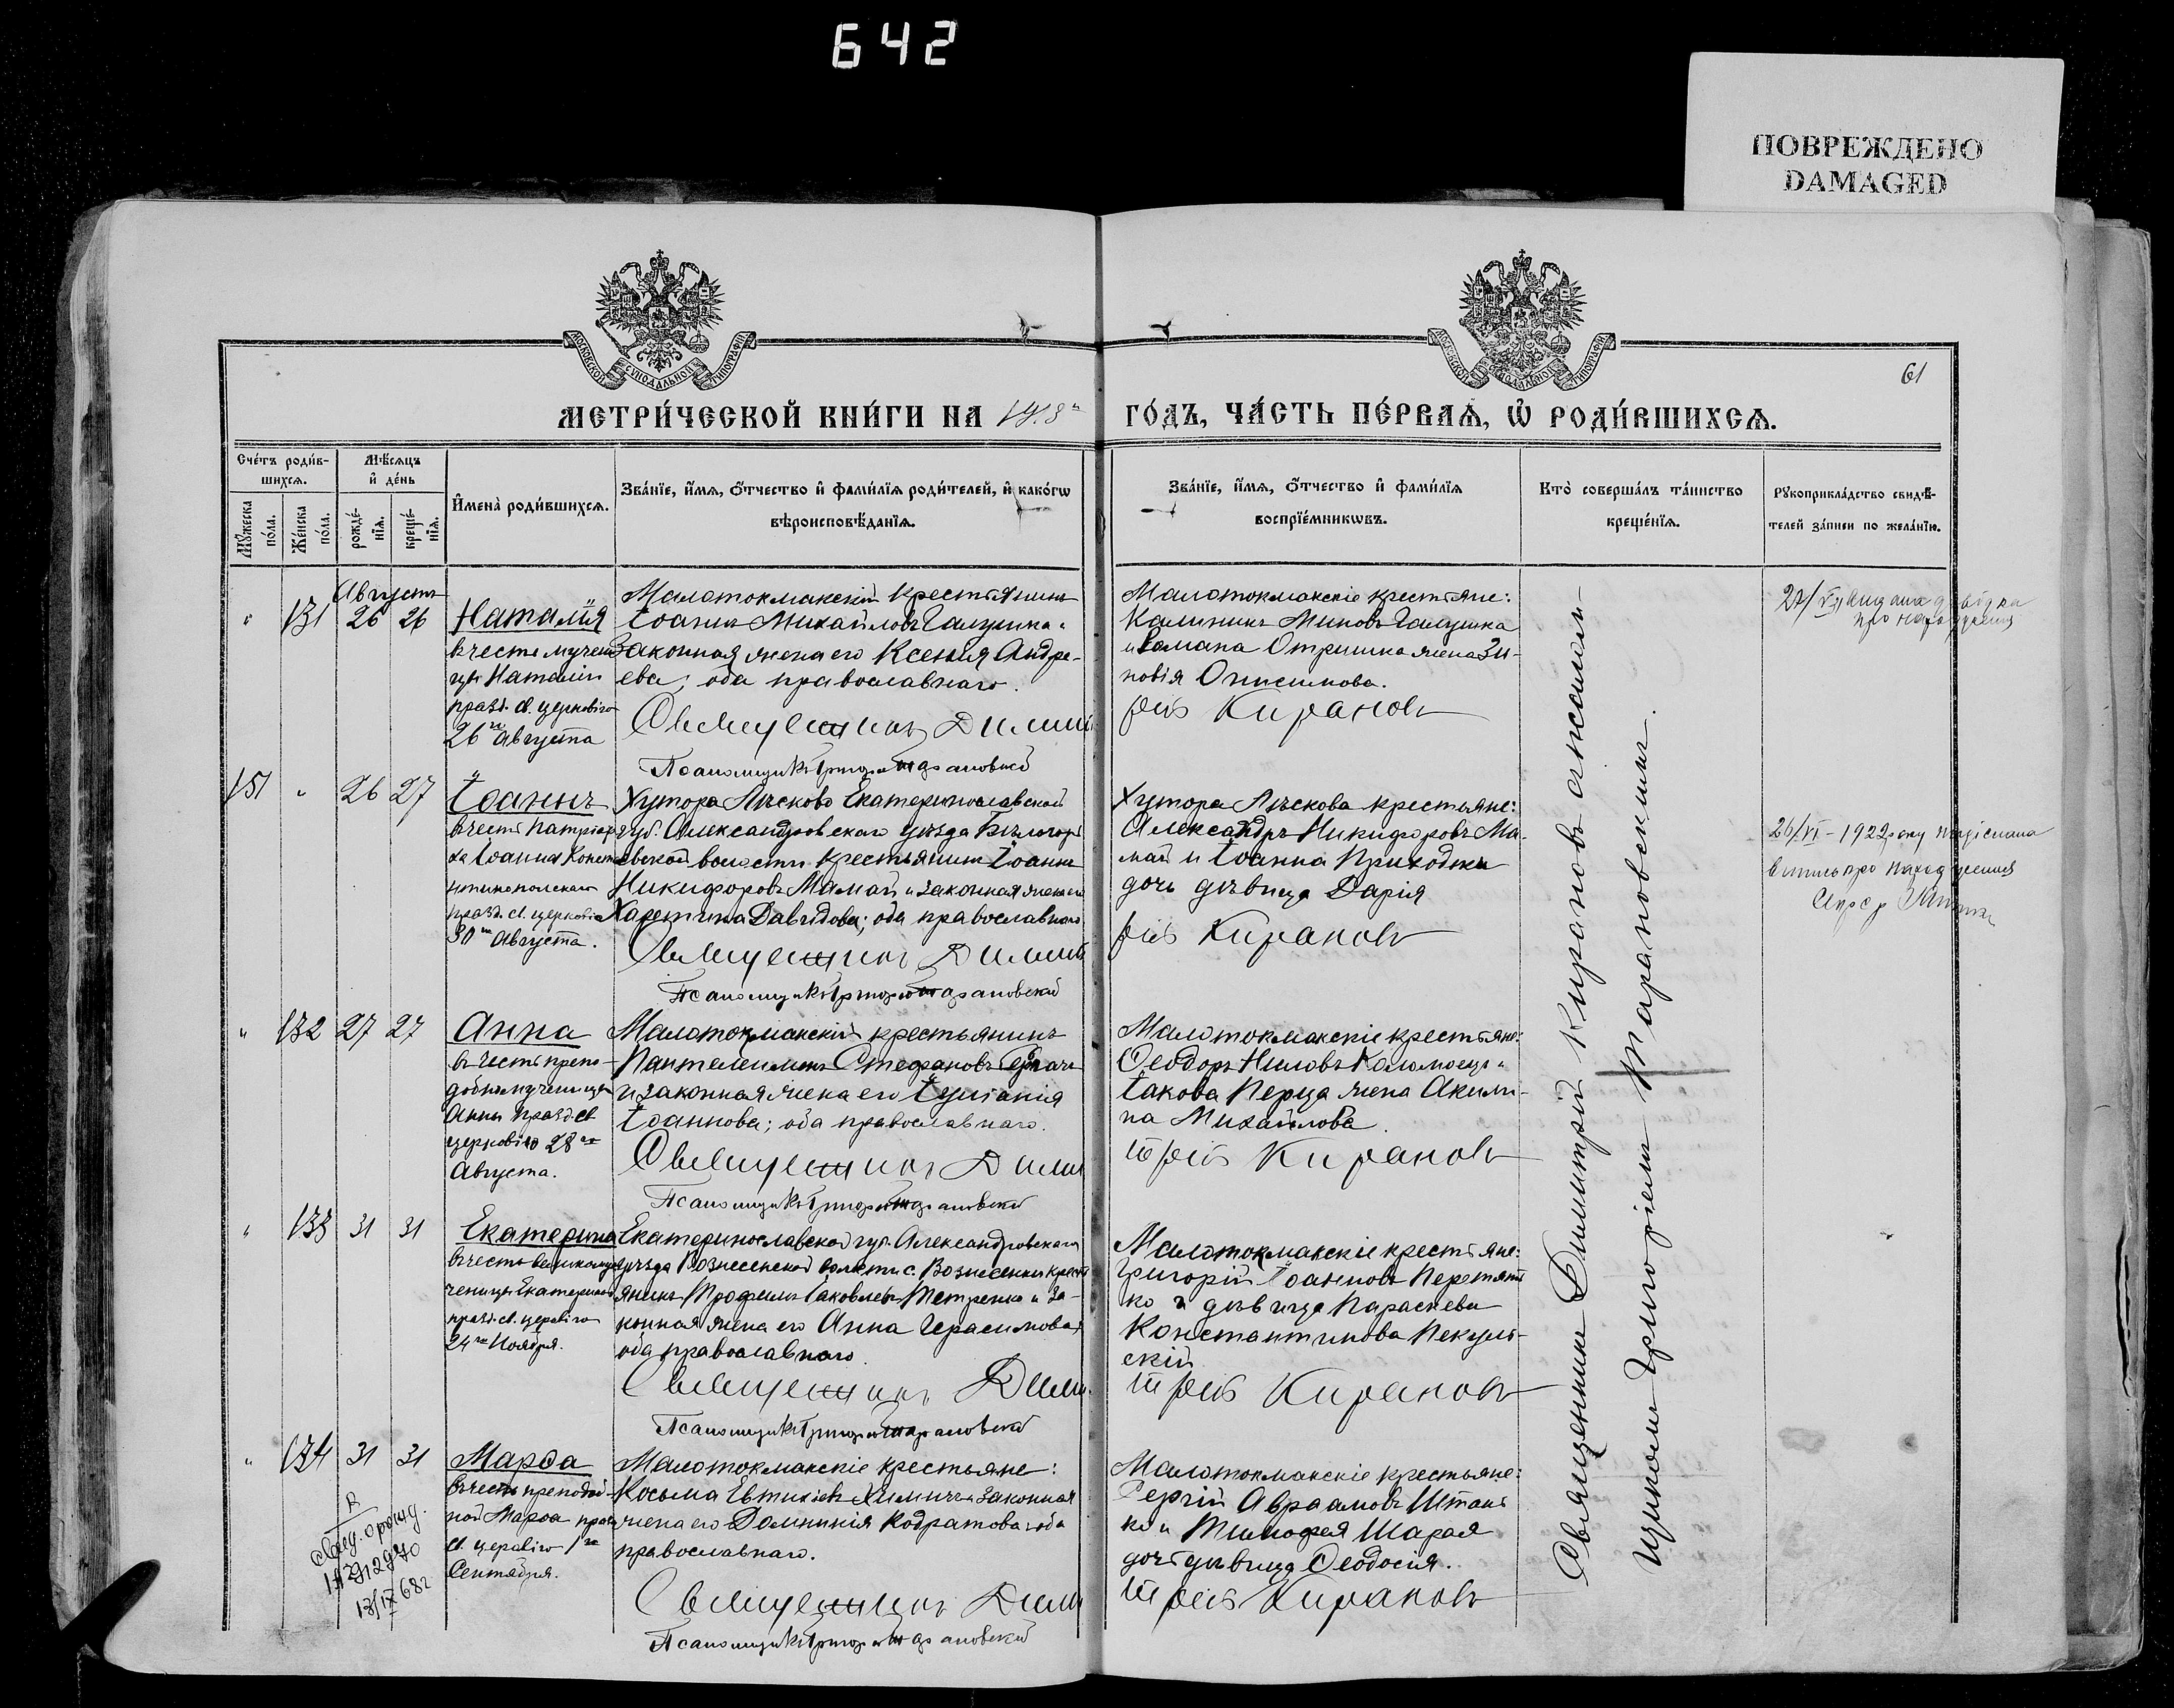 642
ПОВРЕЖДЕНО
DAMAGED
МОСКОВСКОЙ СѴНОДАЛЬНОЙ ТИПОГРАФІИ
МОСКОВСКОЙ СѴНОДАЛЬНОЙ ТИПОГРАФІИ
61
МЕТРИ́ЧЕСКОЙ КНИ́ГИ НА
ГО́ДЪ, ЧА́СТЬ ПЕ́РВАѦ, Ѡ҆ РОДИ́ВШИХСѦ.
Сче́тъ роди́в-
шихсѧ.
Мѣ́сѧцъ
и҆ де́нь
Мꙋ́жеска по́ла.
Же́нска по́ла.
рожде́-
нїѧ.
креще́-
нїѧ.
И҆мена̀ роди́вшихсѧ.
Зва́нїе, и҆́мѧ, ѻ҆́тчество и҆ фами́лїѧ роди́телей, и҆ како́гѡ
вѣроисповѣ́данїѧ.
Зва́нїе, и҆́мѧ, ѻ҆́тчество и҆ фами́лїѧ
воспрїе́мникѡвъ.
Кто̀ соверша́лъ та́инство
креще́нїѧ.
Рꙋкоприкла́дство свидѣ́-
телей за́писи по жела́нїю.
Августъ
" 131 26 26
Наталія
въ честь мучени-
цы Наталіи
празд. св. церковію
26го Августа
Малотокмакскій крестьянинъ
Іоаннъ Михайловъ Галушка и
законная жена его Ксенія Андре-
ева; оба православнаго.
Священникъ Димит
Псаломщикъ Григорій Тарановскій
Малотокмакскіе крестьяне:
Калиникъ Миновъ Галушка
и Романа Отришка жена Зи-
новія Онисимова.
рій Кирановъ
151 " 26 27
Іоаннъ
въ честь Патріар-
ха Іоанна Конста-
нтинопольскаго
празд. св. церковію
30го Августа.
Хутора Лѣсково Екатеринославской
губ. Александровскаго уѣзда Бѣлогорь-
евской волости крестьянинъ Іоаннъ
Никифоровъ Мамай и законная жена его
Харетина Давидова; оба православнаго.
Священникъ Димит
Псаломщикъ Григорій Тарановскій
Хутора Лѣскова крестьяне:
Александръ Никифоровъ Ма-
май и Іоанна Приходька
дочь дѣвица Дарія
рій Кирановъ
26/VI - 1922 року
" 132 27 27
Анна
въ честь препо-
добномученицы
Анны празд. св.
церковію 28го
Августа.
Малотокмакскій крестьянинъ
Пантелеимонъ Стефановъ
и законная жена его Іуліанія
Іоаннова; оба православнаго.
Священникъ Дими
Псаломщикъ Григорій Тарановскій
Малотокмакскіе крестьяне:
Ѳеодоръ Ниловъ Коломоецъ и
Іакова Перца жена Акили-
на Михайлова.
трій Кирановъ
" 133 31 31
Екатерина
въ честь великому-
ченицы Екатерины
празд. св. церквію
24го Ноября.
Екатеринославской губ. Александровскаго
уѣзда Вознесенской волости с. Вознесенки кресть-
янинъ Трофимъ Іаковлевъ Петренко и за-
конная жена его Анна Герасимова;
оба православнаго.
Священникъ Дими
Псаломщикъ Григорій Тарановскій
Малотокмакскіе крестьяне:
Григорій Іоанновъ Перетять-
ко и дѣвица Параскева
Константинова Пекуль-
скій
трій Кирановъ
" 134 31 31
Марѳа
въ честь преподоб-
ной Марѳы празд.
св. церквію 1го
Сентября.
Малотокмакскіе крестьяне:
Косьма Евтихіевъ Химичъ и законная
жена его Домникія Кодратова; оба
православнаго.
Священникъ Дими
Псаломщикъ Григорій Тарановскій
Малотокмакскіе крестьяне:
Сергій Авраамовъ Штань-
ко и Тимоѳея Шарая
дочь дѣвица Ѳеодосія.
трій Кирановъ
13/IX 68г
Священникъ Димитрій Кирановъ съ псалом-
щикомъ Григоріемъ Тарановскимъ.